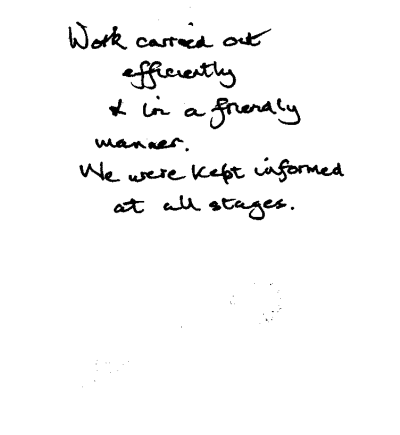 Work carried out
efficiently
& in a friendly
manner.
We were kept informed
at all stages.